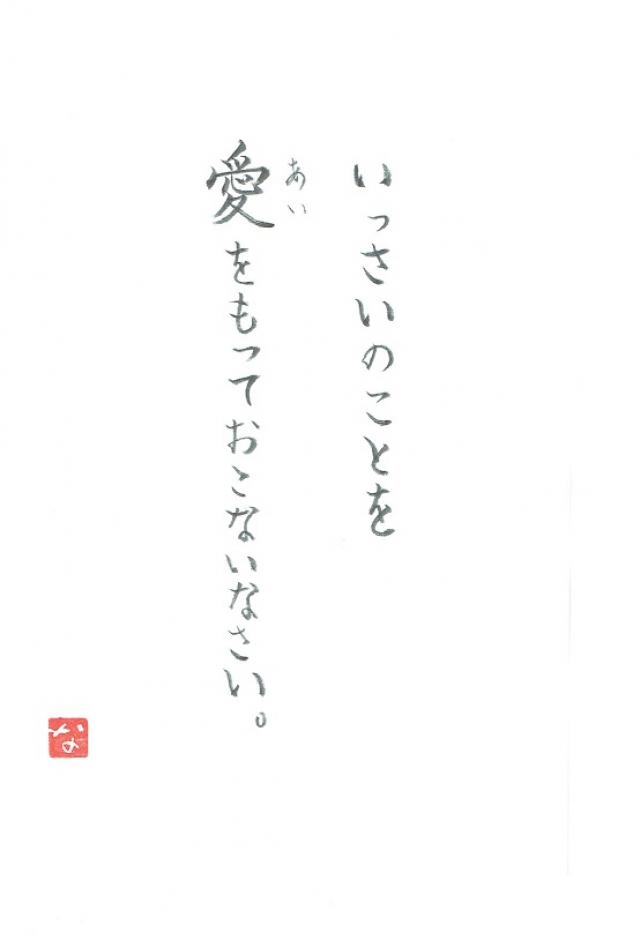 いっさいのことを
愛をもっておこないなさい。
あい
な